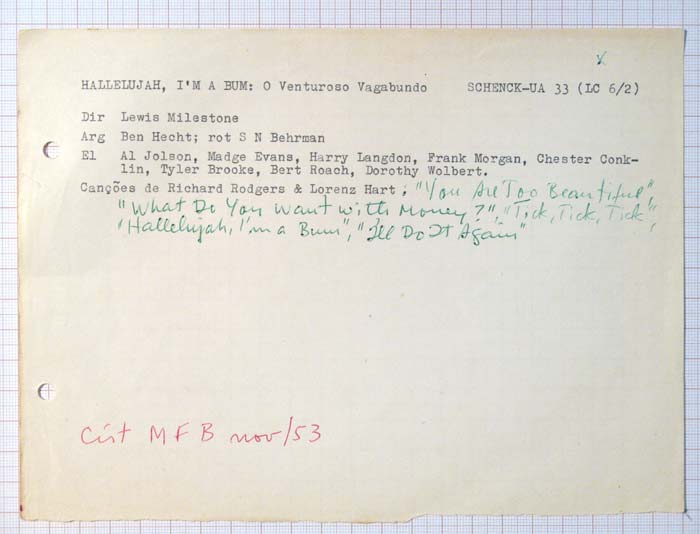 HALLELUJAH, I'M A BUM: O Venturoso Vagabundo SCHENCK-UA 33 (LC 6/2)
Dir Lewis Milestone
Arg Ben Hecht; rot S N Behrman
El Al Jolson, Madge Evans, Harry Langdon, Frank Morgan, Chester Conk-
lin, Tyler Brooke, Bert Roach, Dorothy Wolbert.
Canções de Richard Rodgers & Lorenz Hart: "You Are Too Beautiful",
"What Do You Want with Money?", "Tick, Tick, Tick",
"Hallelujah, I'm a Bum", "I'll Do It Again"
MFB nov/53